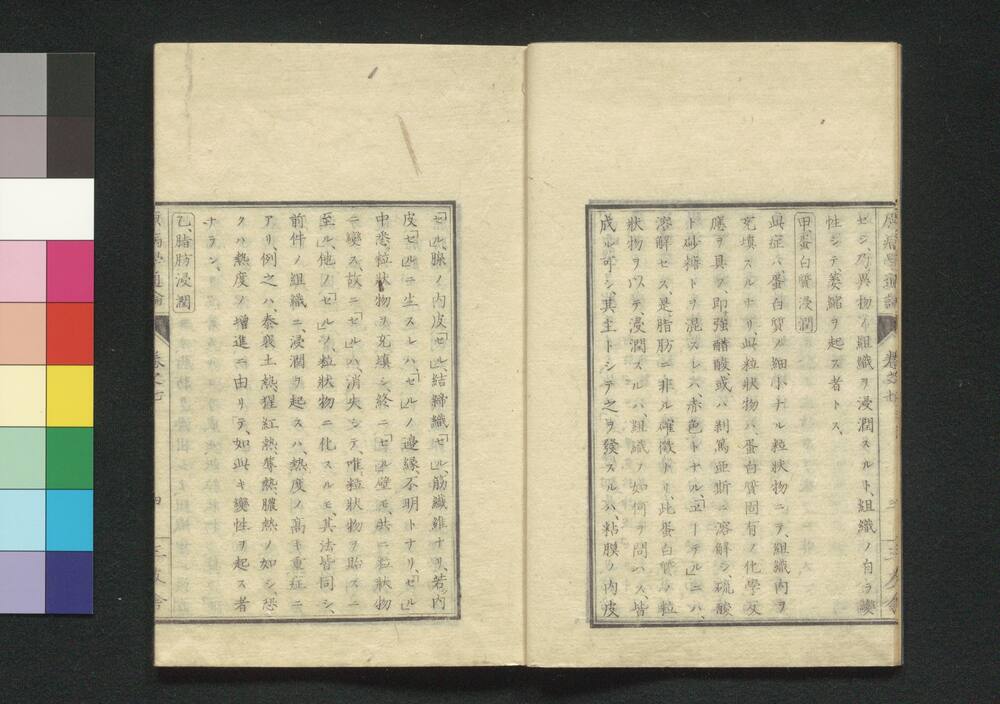 原病學通論 卷之七
セシ、乃異物ノ組織ヲ浸潤スルト、組織ノ自ラ變
性シテ、萎縮ヲ起ス者トス、
甲蛋白質浸潤
此症ハ蛋白質ノ細小ナル粒狀物ニテ、組織内ヲ
充填スルナリ、此粒狀物ハ、蛋白質固有ノ化學反
應ヲ具フ、即強醋酸或ハ剥篤亜斯ニ溶解シ、硫酸
ト砂糖トヲ混スレハ、赤色トナル、「エーテル」ニハ、
溶解セス、是脂肪ニ非ル確徴トリ、此蛋白質ノ粒
狀物ヲ以テ、浸潤スルハ、組織ノ如何ヲ問ハス、皆
成ル可シ、其主トシテ之ヲ發スルハ粘膜ノ内皮
「セ」ル、腺ノ内皮「セ」ル、結締織「セ」ル、筋纖維ナリ、若内
皮「セ」ルニ生スレハ、「セ」ルノ邊緣、不明トナリ、「セ」ル
中悉ク粒狀物ヲ充填シ、終ニ「セ」ル壁モ、共ニ粒狀物
ニ變ス、故ニ「セ」ルハ、消失シテ、唯粒狀物ヲ貽スニ
至ル、他ノ「セ」ルノ、粒狀物ニ化スルモ、其法皆同シ、
前件ノ組織ニ、浸潤ヲ起スハ、熱度ノ高キ重症ニ
アリ、例之ハ、泰衰土熱猩紅熱、蓐熱膿熱ノ如シ、恐
クハ熱度ノ增進ニ由リテ、如此キ變性ヲ起ス者
ナラン、
乙、脂肪浸潤
原病學通論 卷之七 四